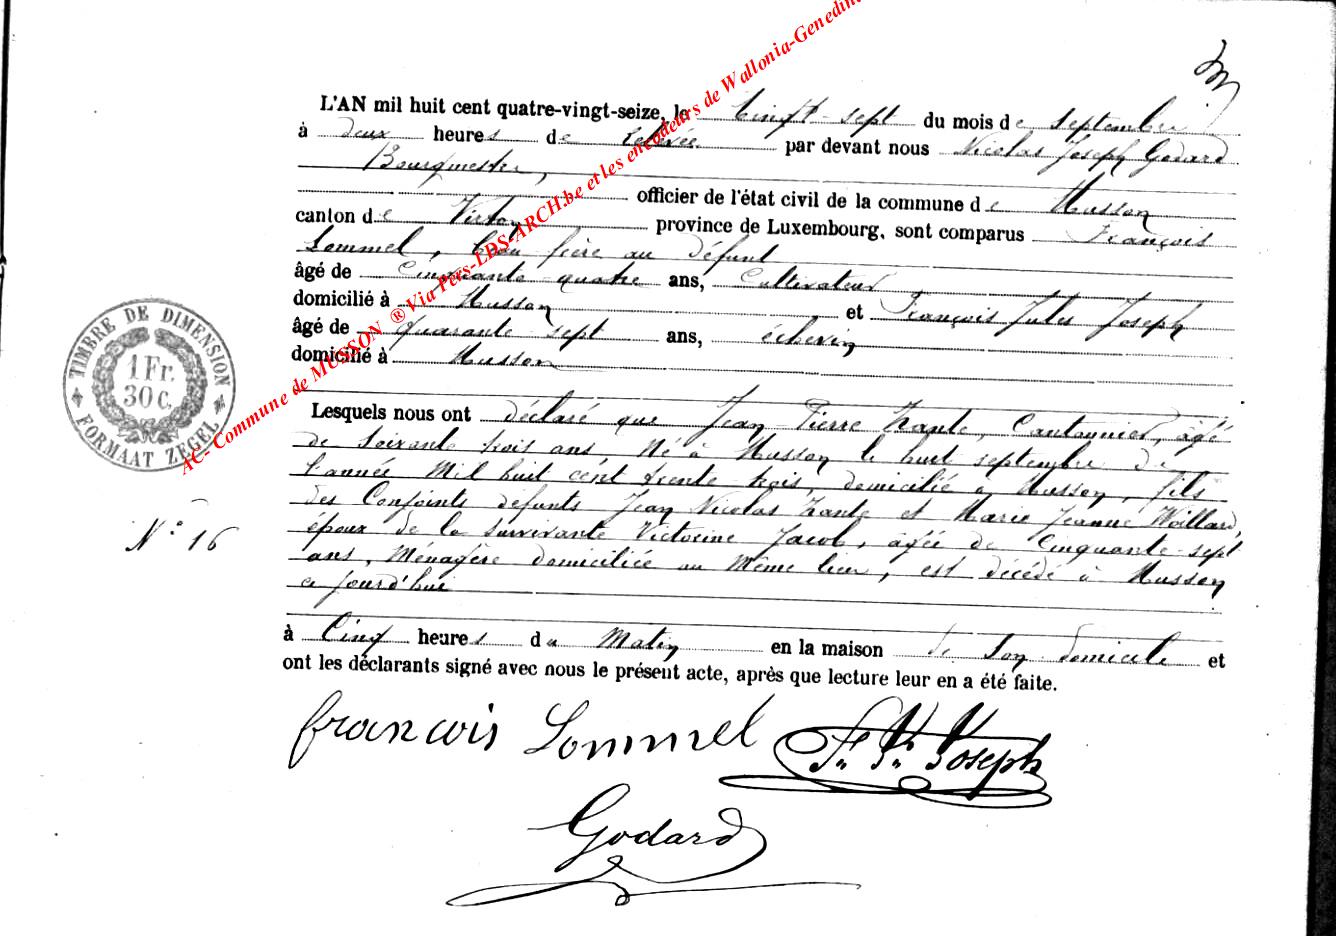 L'AN mil huit cent quatre-vingt-seize, le Vingt-sept du mois de septembre
à deux heures de Relevée par devant nous Nicolas Joseph Godard
Bourgmestre,
officier de l'état civil de la commune de Musson
canton de Virton province de Luxembourg, sont comparus François
Lommel, beau frère au défunt
âgé de Cinquante quatre ans, Cultivateur
domicilié à Musson et François Jules Joseph
âgé de quarante sept ans, échevin
domicilié à Musson
Lesquels nous ont déclaré que Jean Pierre Zante, Cantonnier, âgé
de soixante trois ans, Né à Musson le huit septembre de
l'année Mil huit cent trente trois, domicilié à Musson, fils
des Conjoints défunts Jean Nicolas Zante et Marie Jeanne Waillard,
époux de la survivante Victorine Jacob, âgée de Cinquante-sept
ans, Ménagère domiciliée au Même lieu, est décédé à Musson
ce jourd'hui
à Cinq heures du Matin en la maison de Son domicile et
ont les déclarants signé avec nous le présent acte, après que lecture leur en a été faite.
TIMBRE DE DIMENSION
1 Fr.
30 C.
FORMAAT ZEGEL
N° 16
francois Lommel Joseph
Godard
AC-Commune de MUSSON ® Via Pers-LDS-ARCH.be et les encodeurs de Wallonia-Genedin